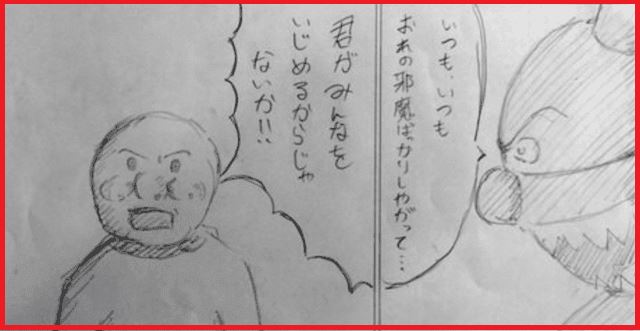 いつも、いつも
おれの邪魔ばっかりしやがって…
君がみんなを
いじめるからじゃ
ないか!!